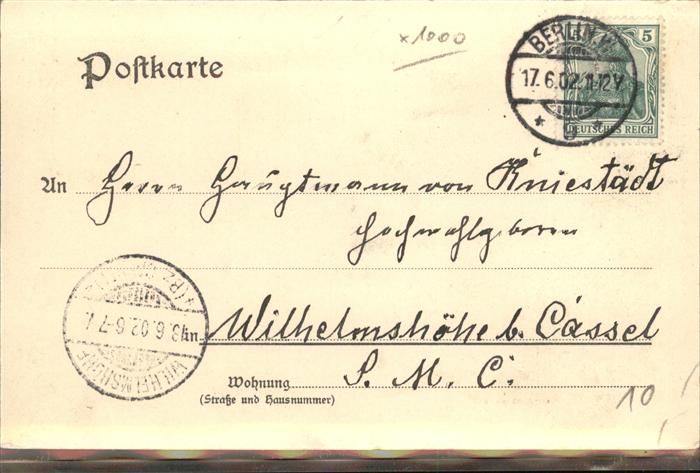 ×1000
Postkarte
BERLIN W
17.6.02.11-12V
5
DEUTSCHES REICH
An Herrn Hauptmann von Kniestädt
Hochwohlgeboren
in Wilhelmshöhe b. Cassel
S. M. C.
Wohnung
(Straße und Hausnummer)
WILHELMSHÖHE
6.02.6-7
10